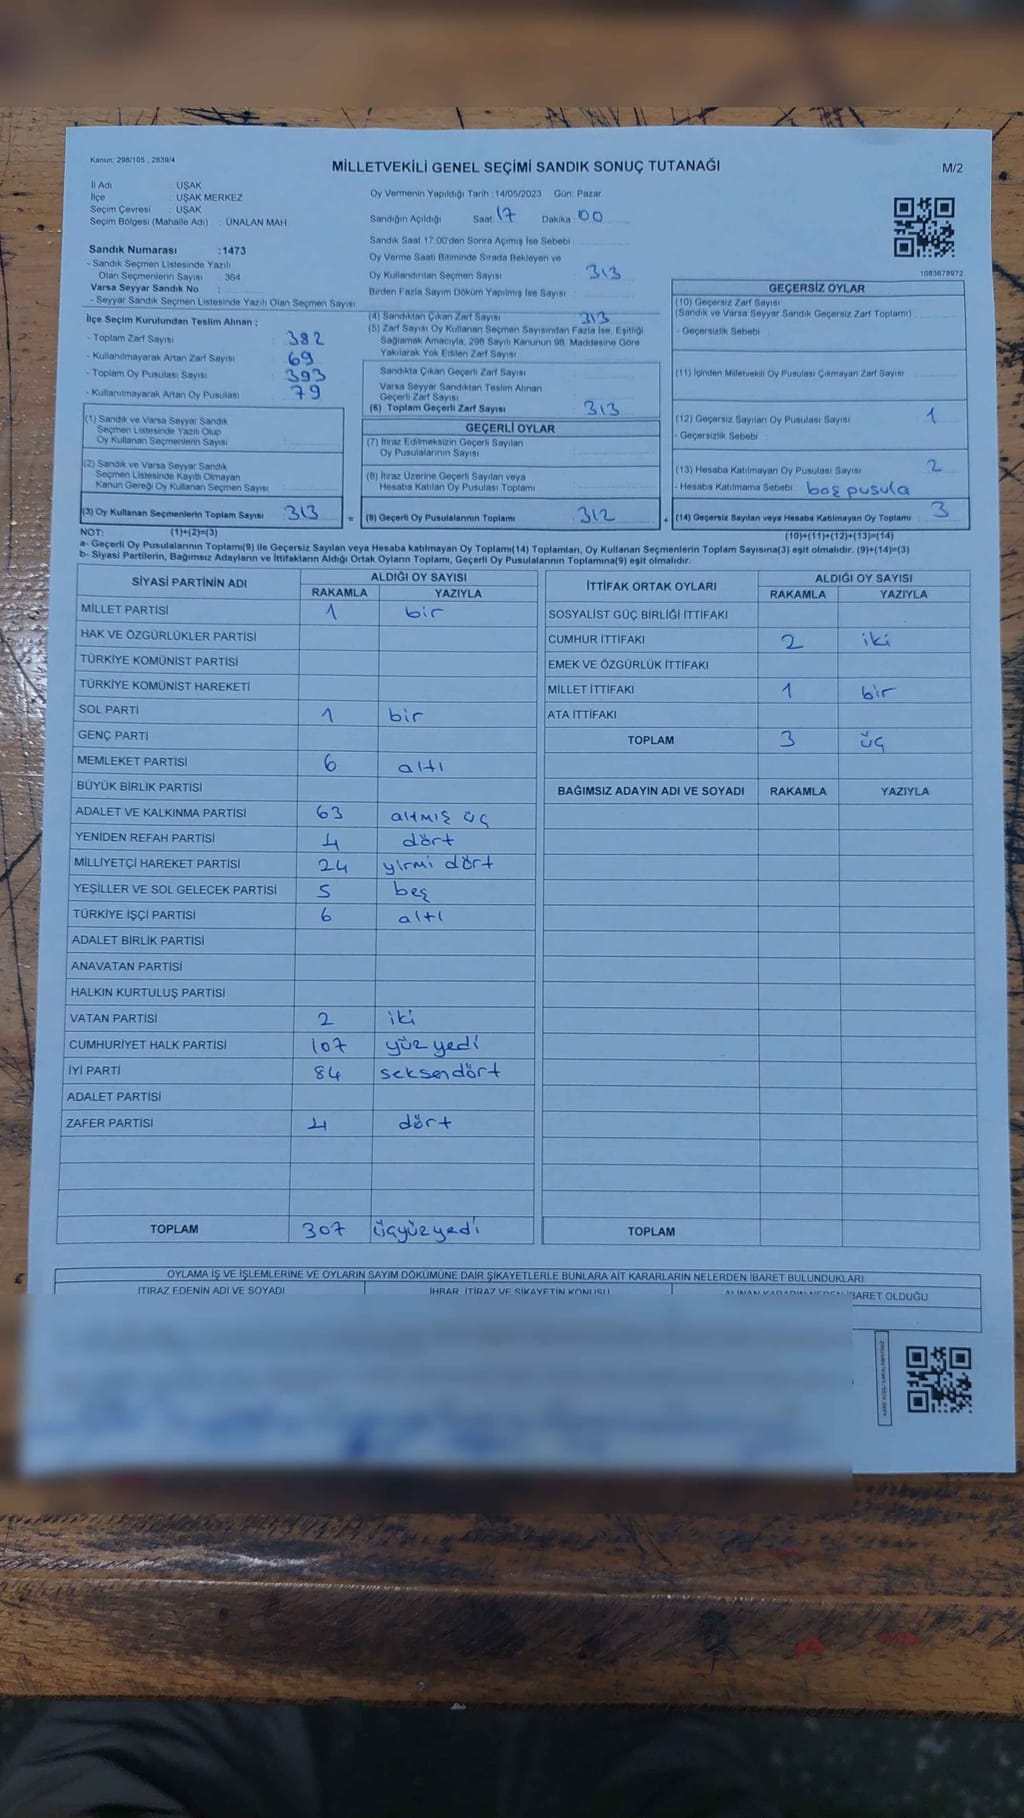 Kanun: 298/105 , 2839/4
MİLLETVEKİLİ GENEL SEÇİMİ SANDIK SONUÇ TUTANAĞI
M/2
İl Adı : UŞAK
İlçe : UŞAK MERKEZ
Seçim Çevresi : UŞAK
Seçim Bölgesi (Mahalle Adı) : ÜNALAN MAH
Oy Vermenin Yapıldığı Tarih : 14/05/2023 Gün: Pazar
Sandığın Açıldığı Saat: 17 Dakika : 00
Sandık Saat 17:00'den Sonra Açımış İse Sebebi :
Oy Verme Saati Bitiminde Sırada Bekleyen ve
Oy Kullandırılan Seçmen Sayısı : 313
Birden Fazla Sayım Döküm Yapılmış İse Sayısı :
1083678972
Sandık Numarası :1473
- Sandık Seçmen Listesinde Yazılı
Olan Seçmenlerin Sayısı : 364
Varsa Seyyar Sandık No :
- Seyyar Sandık Seçmen Listesinde Yazılı Olan Seçmen Sayısı
İlçe Seçim Kurulundan Teslim Alınan ;
- Toplam Zarf Sayısı : 382
- Kullanılmayarak Artan Zarf Sayısı : 69
- Toplam Oy Pusulası Sayısı : 393
- Kullanılmayarak Artan Oy Pusulası : 79
(1) Sandık ve Varsa Seyyar Sandık
Seçmen Listesinde Yazılı Olup
Oy Kullanan Seçmenlerin Sayısı
(2) Sandık ve Varsa Seyyar Sandık
Seçmen Listesinde Kayıtlı Olmayan
Kanun Gereği Oy Kullanan Seçmen Sayısı
(3) Oy Kullanan Seçmenlerin Toplam Sayısı : 313 =
(4) Sandıktan Çıkan Zarf Sayısı : 313
(5) Zarf Sayısı Oy Kullanan Seçmen Sayısından Fazla İse, Eşitliği
Sağlamak Amacıyla, 298 Sayılı Kanunun 98. Maddesine Göre
Yakılarak Yok Edilen Zarf Sayısı
Sandıkta Çıkan Geçerli Zarf Sayısı :
Varsa Seyyar Sandıktan Teslim Alınan
Geçerli Zarf Sayısı :
(6) Toplam Geçerli Zarf Sayısı : 313
GEÇERLİ OYLAR
(7) İtiraz Edilmeksizin Geçerli Sayılan
Oy Pusulalarının Sayısı :
(8) İtiraz Üzerine Geçerli Sayılan veya
Hesaba Katılan Oy Pusulası Toplamı :
(9) Geçerli Oy Pusulalarının Toplamı : 312 +
GEÇERSİZ OYLAR
(10) Geçersiz Zarf Sayısı
(Sandık ve Varsa Seyyar Sandık Geçersiz Zarf Toplamı) :
- Geçersizlik Sebebi :
(11) İçinden Milletvekili Oy Pusulası Çıkmayan Zarf Sayısı :
(12) Geçersiz Sayılan Oy Pusulası Sayısı : 1
- Geçersizlik Sebebi :
(13) Hesaba Katılmayan Oy Pusulası Sayısı : 2
- Hesaba Katılmama Sebebi : boş pusula
(14) Geçersiz Sayılan veya Hesaba Katılmayan Oy Toplamı : 3
NOT: (1)+(2)=(3)
(10)+(11)+(12)+(13)=(14)
a- Geçerli Oy Pusulalarının Toplamı(9) ile Geçersiz Sayılan veya Hesaba katılmayan Oy Toplamı(14) Toplamları, Oy Kullanan Seçmenlerin Toplam Sayısına(3) eşit olmalıdır. (9)+(14)=(3)
b- Siyasi Partilerin, Bağımsız Adayların ve İttifakların Aldığı Ortak Oyların Toplamı, Geçerli Oy Pusulalarının Toplamına(9) eşit olmalıdır.
SİYASİ PARTİNİN ADI ALDIĞI OY SAYISI
RAKAMLA YAZIYLA
MİLLET PARTİSİ 1 bir
HAK VE ÖZGÜRLÜKLER PARTİSİ
TÜRKİYE KOMÜNİST PARTİSİ
TÜRKİYE KOMÜNİST HAREKETİ
SOL PARTİ 1 bir
GENÇ PARTİ
MEMLEKET PARTİSİ 6 altı
BÜYÜK BİRLİK PARTİSİ
ADALET VE KALKINMA PARTİSİ 63 altmış üç
YENİDEN REFAH PARTİSİ 4 dört
MİLLİYETÇİ HAREKET PARTİSİ 24 yirmi dört
YEŞİLLER VE SOL GELECEK PARTİSİ 5 beş
TÜRKİYE İŞÇİ PARTİSİ 6 altı
ADALET BİRLİK PARTİSİ
ANAVATAN PARTİSİ
HALKIN KURTULUŞ PARTİSİ
VATAN PARTİSİ 2 iki
CUMHURİYET HALK PARTİSİ 107 yüz yedi
İYİ PARTİ 84 seksendört
ADALET PARTİSİ
ZAFER PARTİSİ 4 dört
TOPLAM 307 üçyüzyedi
İTTİFAK ORTAK OYLARI ALDIĞI OY SAYISI
RAKAMLA YAZIYLA
SOSYALİST GÜÇ BİRLİĞİ İTTİFAKI
CUMHUR İTTİFAKI 2 iki
EMEK VE ÖZGÜRLÜK İTTİFAKI
MİLLET İTTİFAKI 1 bir
ATA İTTİFAKI
TOPLAM 3 üç
BAĞIMSIZ ADAYIN ADI VE SOYADI RAKAMLA YAZIYLA
TOPLAM
OYLAMA İŞ VE İŞLEMLERİNE VE OYLARIN SAYIM DÖKÜMÜNE DAİR ŞİKAYETLERLE BUNLARA AİT KARARLARIN NELERDEN İBARET BULUNDUKLARI
İTİRAZ EDENİN ADI VE SOYADI İHBAR, İTİRAZ VE ŞİKAYETİN KONUSU ALINAN KARARIN NEDEN İBARET OLDUĞU